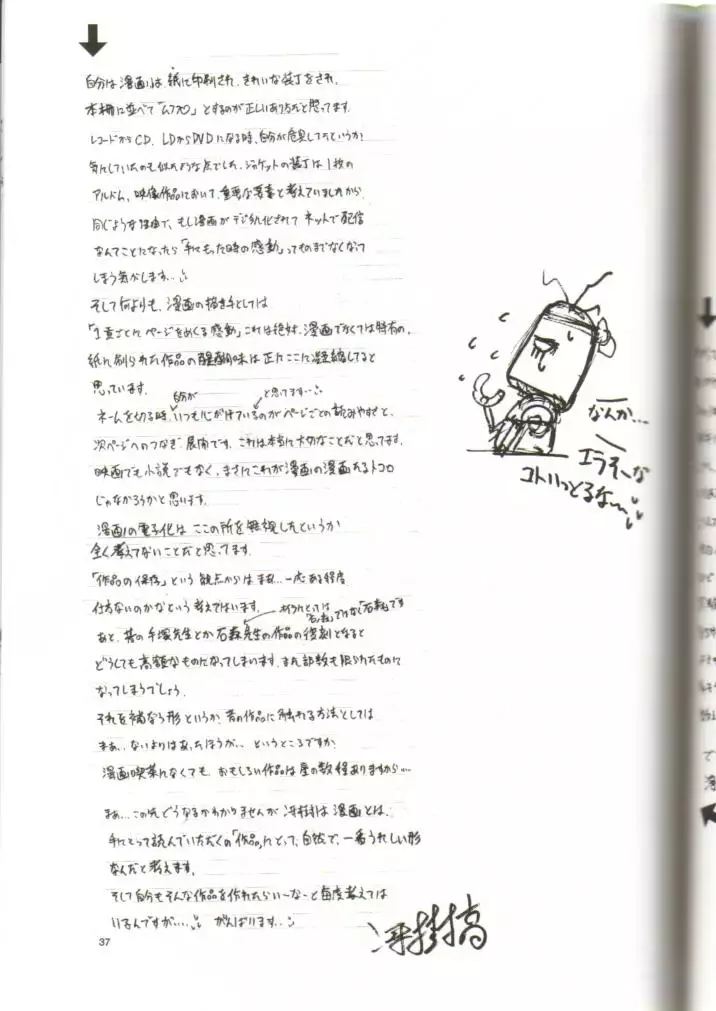 自分は「漫画」は、紙に印刷され、きれいな装丁をされ、
本棚に並べて「ムフフ」とするのが正しいあり方だと思ってます。
レコードからCD、LDからDVDになる時、自分が危惧してたというか
気にしていたのも似たような点でした。ジャケットの装丁は1枚の
アルバム、映像作品において、重要な要素と考えていましたから、
同じような理由で、もし漫画がデジタル化されて ネットで配信
なんてことになったら「手にもった時の感動」ってものまでなくなって
しまう気がします…
そして何よりも、漫画の描き手としては
「1頁ごとに ページをめくる感動」これは絶対、漫画でなくては特有の、
紙に刷られた作品の醍醐味は正にここに凝縮してると
思っています。
自分が
と思ってます…
ネームを切る時、いつも心がけているのがページごとの読みやすさと、
次ページへのつなぎ・展開です。これは本当に大切なことだと思ってます。
映画でも小説でもなく、まさにこれが漫画の漫画たるトコロ
じゃなかろうかと思います。
漫画の電子化は ここの所を無視したというか
全く考えてないことだと思ってます。
「作品の保存」という観点からは まぁ…一応ある程度
仕方ないのかなという考えではいます。
オイラにとっては
「石ノ森」ではなく「石森」です
あと、昔の手塚先生とか石森先生の作品の復刻となると
どうしても高額なものになってしまいます。また部数も限られたものに
なってしまうでしょう。
それを補なう形というか、昔の作品に触れる方法としては
まぁ… ないよりはあったほうが… というところですか?
漫画喫茶になくても おもしろい作品は星の数程ありますから…
まぁ… この先どうなるかわかりませんが 冴樹は「漫画」とは、
手にとって読んでいただくの「作品」にとって、自然で、一番うれしい形
なんだと考えます。
そして自分もそんな作品を作れたらい〜な〜と毎度考えては
いるんですが…… がんばります…
なんか…
エラそーな
コトいっとるな〜
37